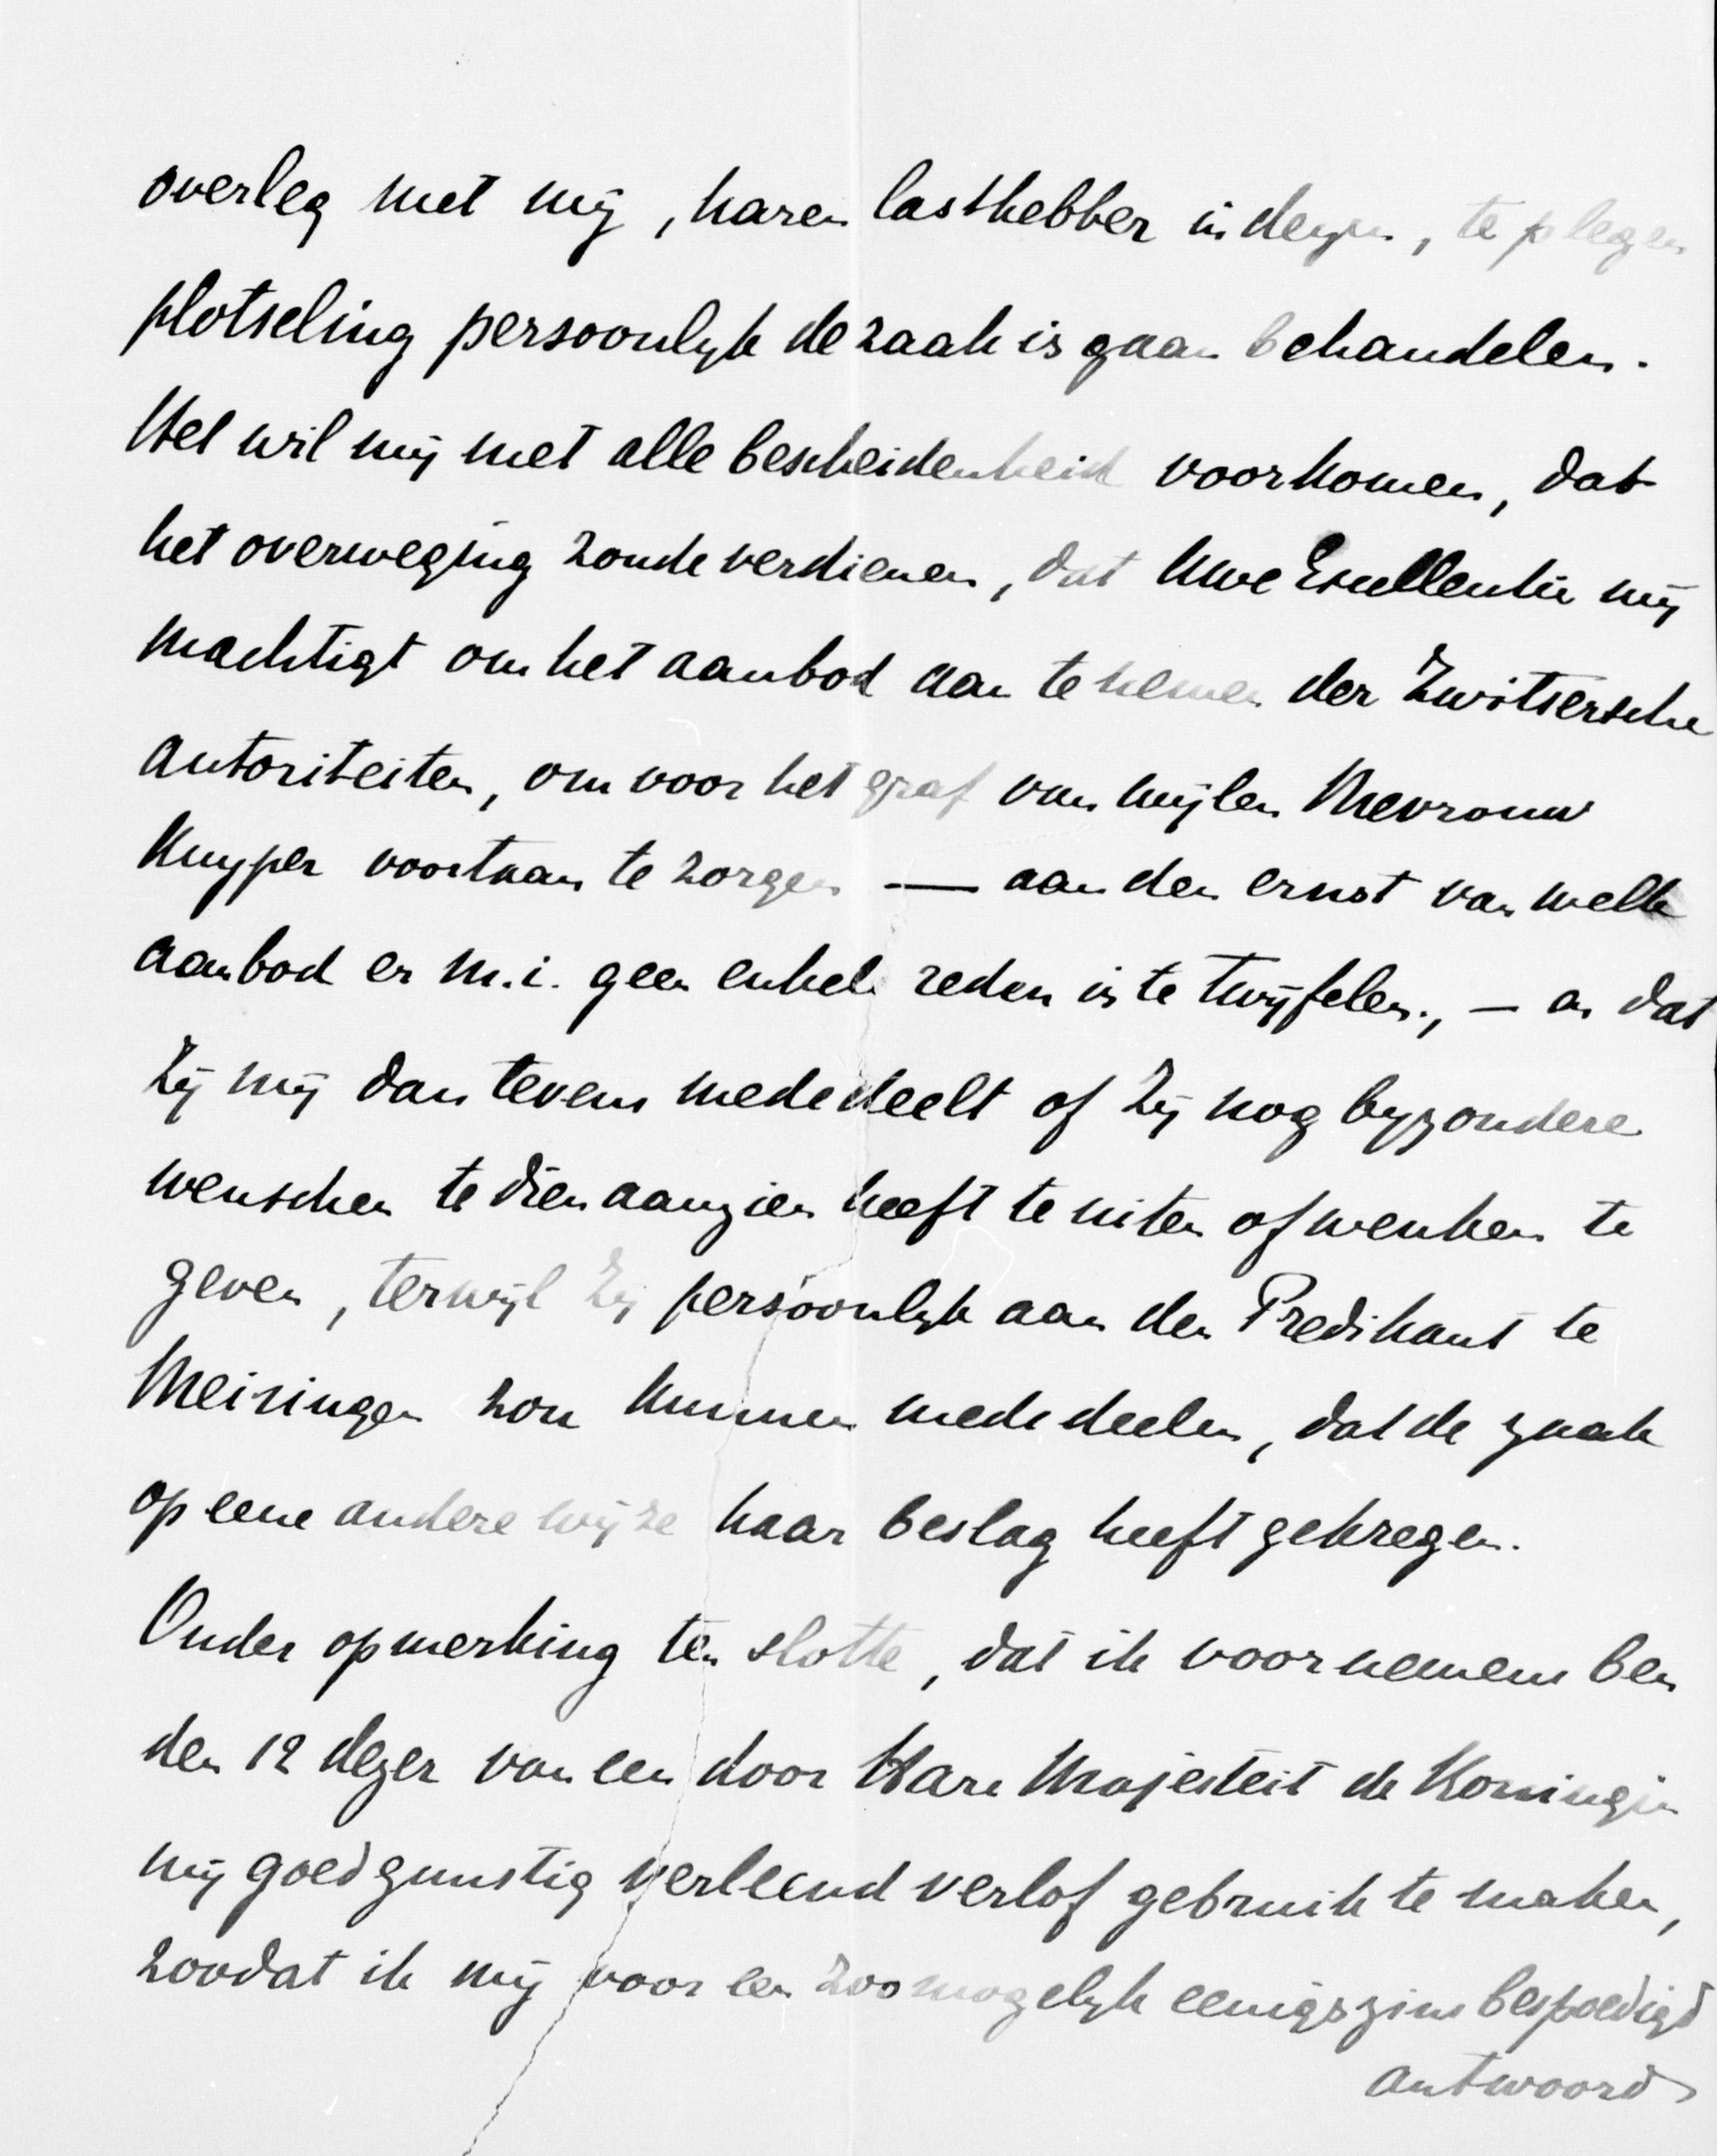 overleg met mij, haren lasthebber in dezen, te plegen
plotseling persoonlyk de zaak is gaan behandelen.
Het wil mij met alle bescheidenheid voorkomen, dat
het overweging zoude verdienen, dat Uwe Excellentie mij
machtigt om het aanbod aan te nemen der Zwitsersche
autoriteiten, om voor het graf van wijlen Mevrouw
Kuyper voortaan te zorgen — aan den ernst van welk
aanbod er m.i. geen enkele reden is te twijfelen, — en dat
Zij mij dan tevens mededeelt of Zij nog byzondere
wenschen te dien aanzien heeft te uiten of wenken te
geven, terwijl Zij persoonlyk aan den Predikant te
Meiringen zou kunnen mededeelen, dat de zaak
op eene andere wijze haar beslag heeft gekregen.
Onder opmerking ten slotte, dat ik voornemens ben
den 12 dezer van een door Hare Majesteit de Koningin
mij goedgunstig verleend verlof gebruik te maken,
zoodat ik mij voor een zoo mogelyk eenigszins bespoedigd
antwoord